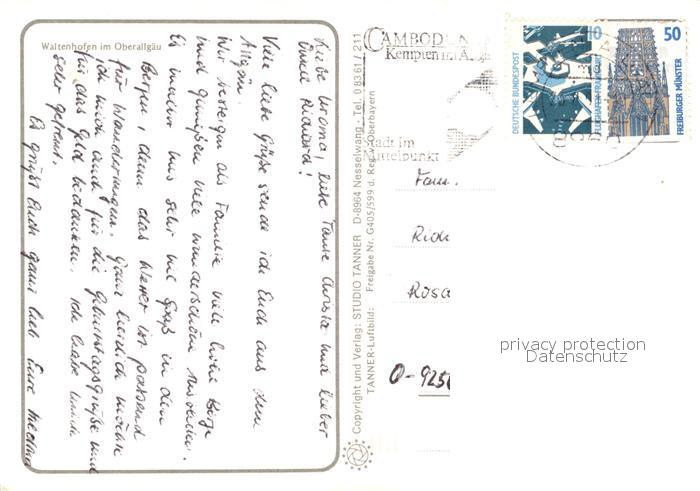 Waltenhofen im Oberallgäu
Liebe Uroma, liebe Tante Christa und lieber
Onkel Richard!
Viele liebe Grüße sende ich Euch aus dem
Allgäu.
Wir besteigen als Familie viele hohe Berge
und genießen viele wunderschöne Aussichten.
Es macht uns sehr viel Spaß in den
Bergen, denn das Wetter ist passend
für Wanderungen. Ganz herzlich möchte
ich mich auch für die Geburtstagsgrüße und
für das Geld bedanken. Ich habe mich
sehr gefreut.
Es grüßt Euch ganz lieb Eure
Copyright und Verlag: STUDIO TANNER D-8964 Nesselwang - Tel. 0 83 61 / 211
TANNER-Luftbild: Freigabe Nr. G405/599 d. Reg. v. Oberbayern
CAMBODUN
Kempten im A
Stadt im
Mittelpunkt
DEUTSCHE BUNDESPOST
10
FLUGHAFEN FRANKFURT
50
FREIBURGER MÜNSTER
Fam.
Rich
Rosa
O-925
privacy protection
Datenschutz